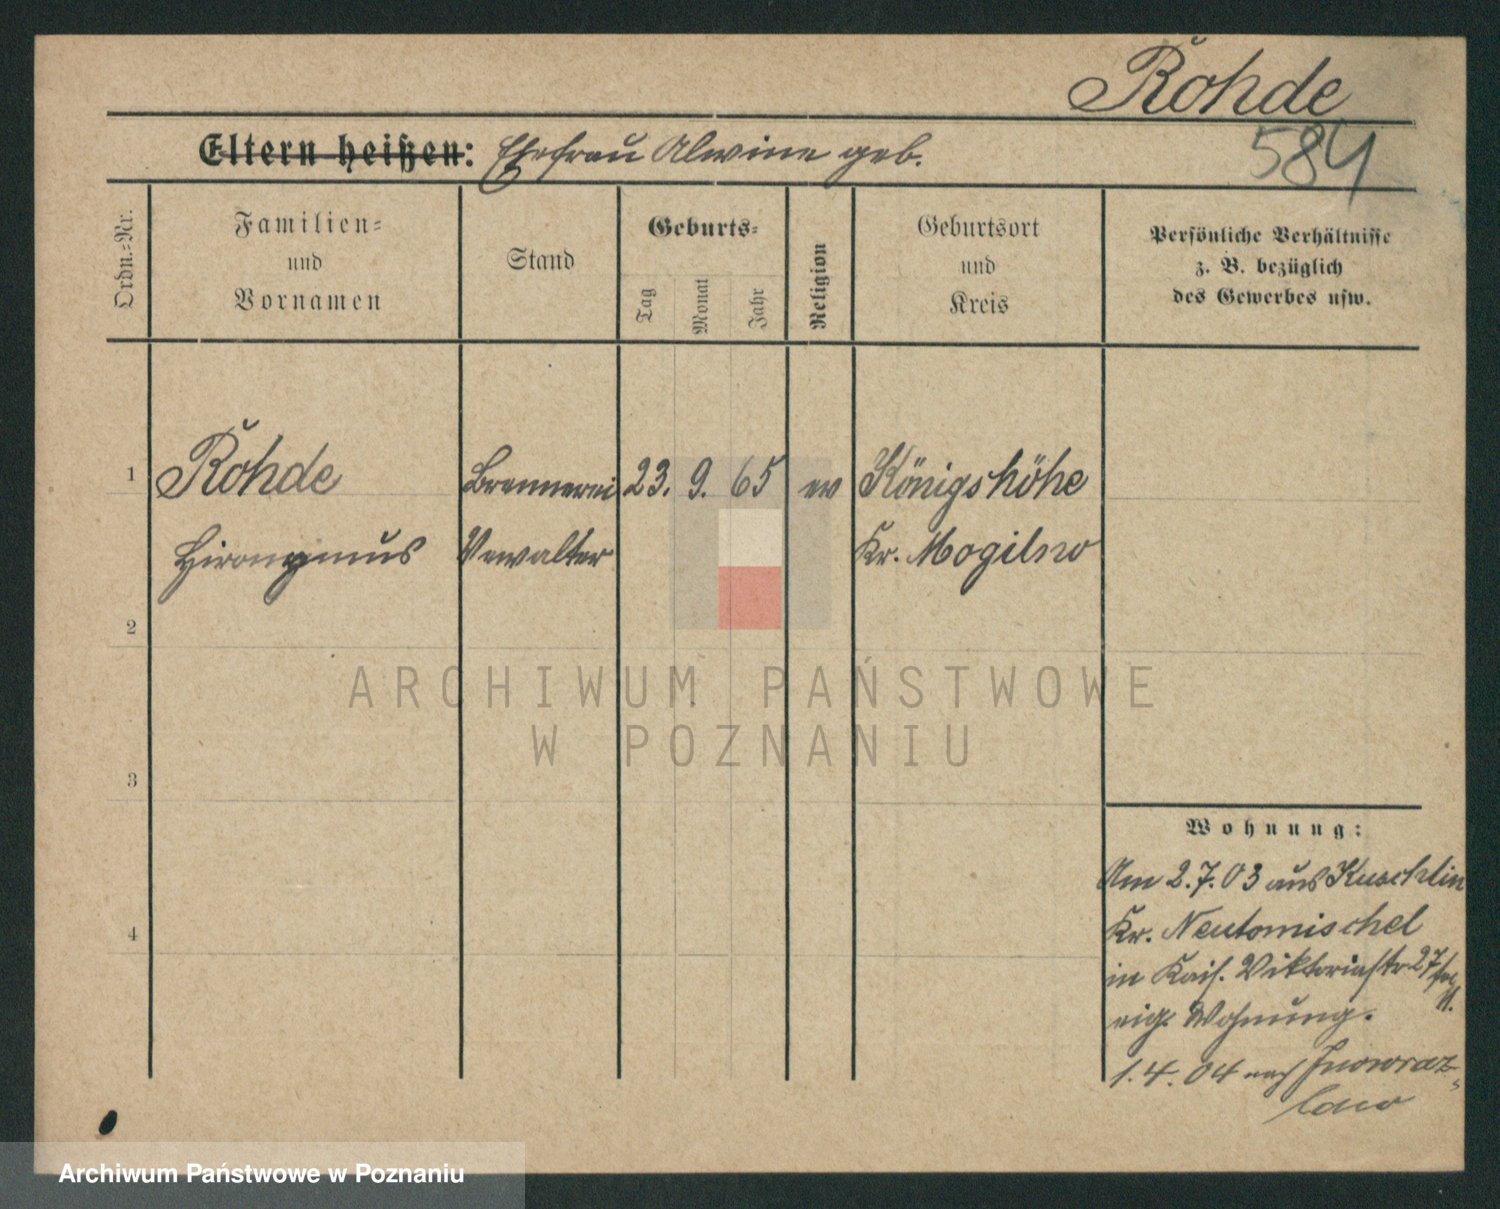 Rohde
584
Eltern heißen: Ehefrau Alwine geb.
Ordn.-Nr.
Familien- und Vornamen
Stand
Geburts-
Tag
Monat
Jahr
Religion
Geburtsort und Kreis
Persönliche Verhältnisse
z. B. bezüglich
des Gewerbes usw.
1 Rohde Brennerei 23. 9. 65 ev Königshöhe
Hironymus Vewalter Kr. Mogilno
2
3
4
Wohnung:
Am 2.7.03 aus Kuschlin
Kr. Neutomischel
in Kais. Viktoriastr 27
eig. Wohnung.
1.4.04 nach Inowraz-
law
ARCHIWUM PAŃSTWOWE
W POZNANIU
Archiwum Państwowe w Poznaniu